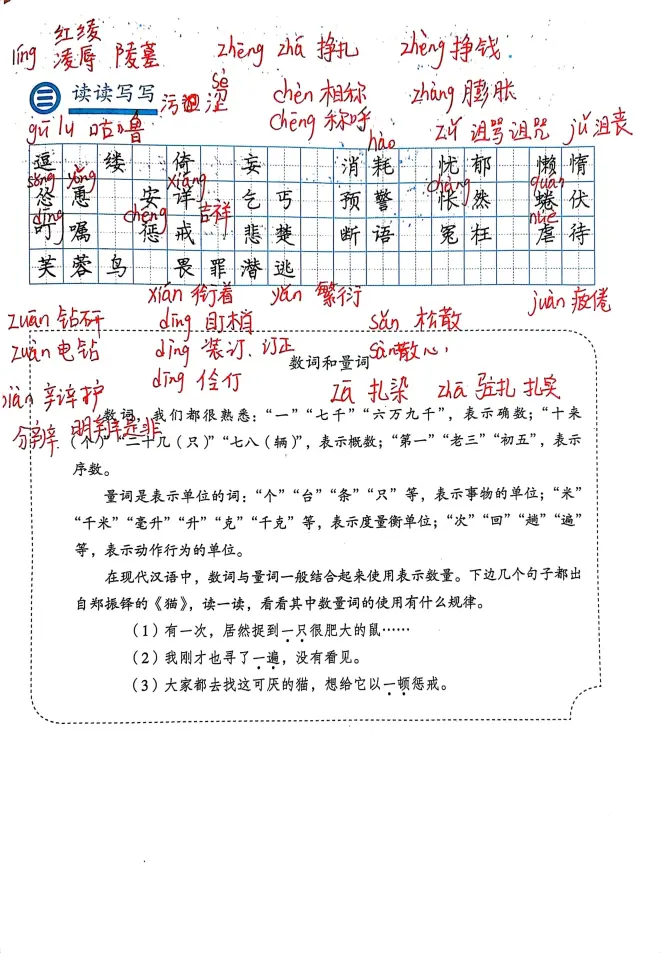 红绫
líng 凌辱 陵墓 zhēng zhá 挣扎 zhèng 挣钱
三 读读写写 污 sè 涩 chèn 相称 zhàng 膨胀
chēng 称呼
gū lu 咕噜 hào zǔ 诅骂诅咒 jǔ 沮丧
逗 缕 倚 妄 消耗 忧郁 懒惰
sǒng yǒng xiáng chàng quán
怂恿 安详 乞丐 预警 怅然 蜷伏
dīng chéng 吉祥 nüè
叮嘱 惩戒 悲楚 断语 冤枉 虐待
芙蓉鸟 畏罪潜逃
xián 衔着 yǎn 繁衍 juàn 疲倦
zuān 钻研 dīng 盯梢 sǎn 松散
zuàn 电钻 dìng 装订、订正 sàn 散心
数词和量词
biàn 辩护 dīng 伶仃 zā 扎染 zhā 驻扎 扎实
数词，我们都很熟悉：“一”“七千”“六万九千”，表示确数；“十来
分辨、明辨是非
（个）”“二十几（只）”“七八（辆）”，表示概数；“第一”“老三”“初五”，表示
序数。
量词是表示单位的词：“个”“台”“条”“只”等，表示事物的单位；“米”
“千米”“毫升”“升”“克”“千克”等，表示度量衡单位；“次”“回”“趟”“遍”
等，表示动作行为的单位。
在现代汉语中，数词与量词一般结合起来使用表示数量。下边几个句子都出
自郑振铎的《猫》，读一读，看看其中数量词的使用有什么规律。
（1）有一次，居然捉到一只很肥大的鼠……
（2）我刚才也寻了一遍，没有看见。
（3）大家都去找这可厌的猫，想给它以一顿惩戒。